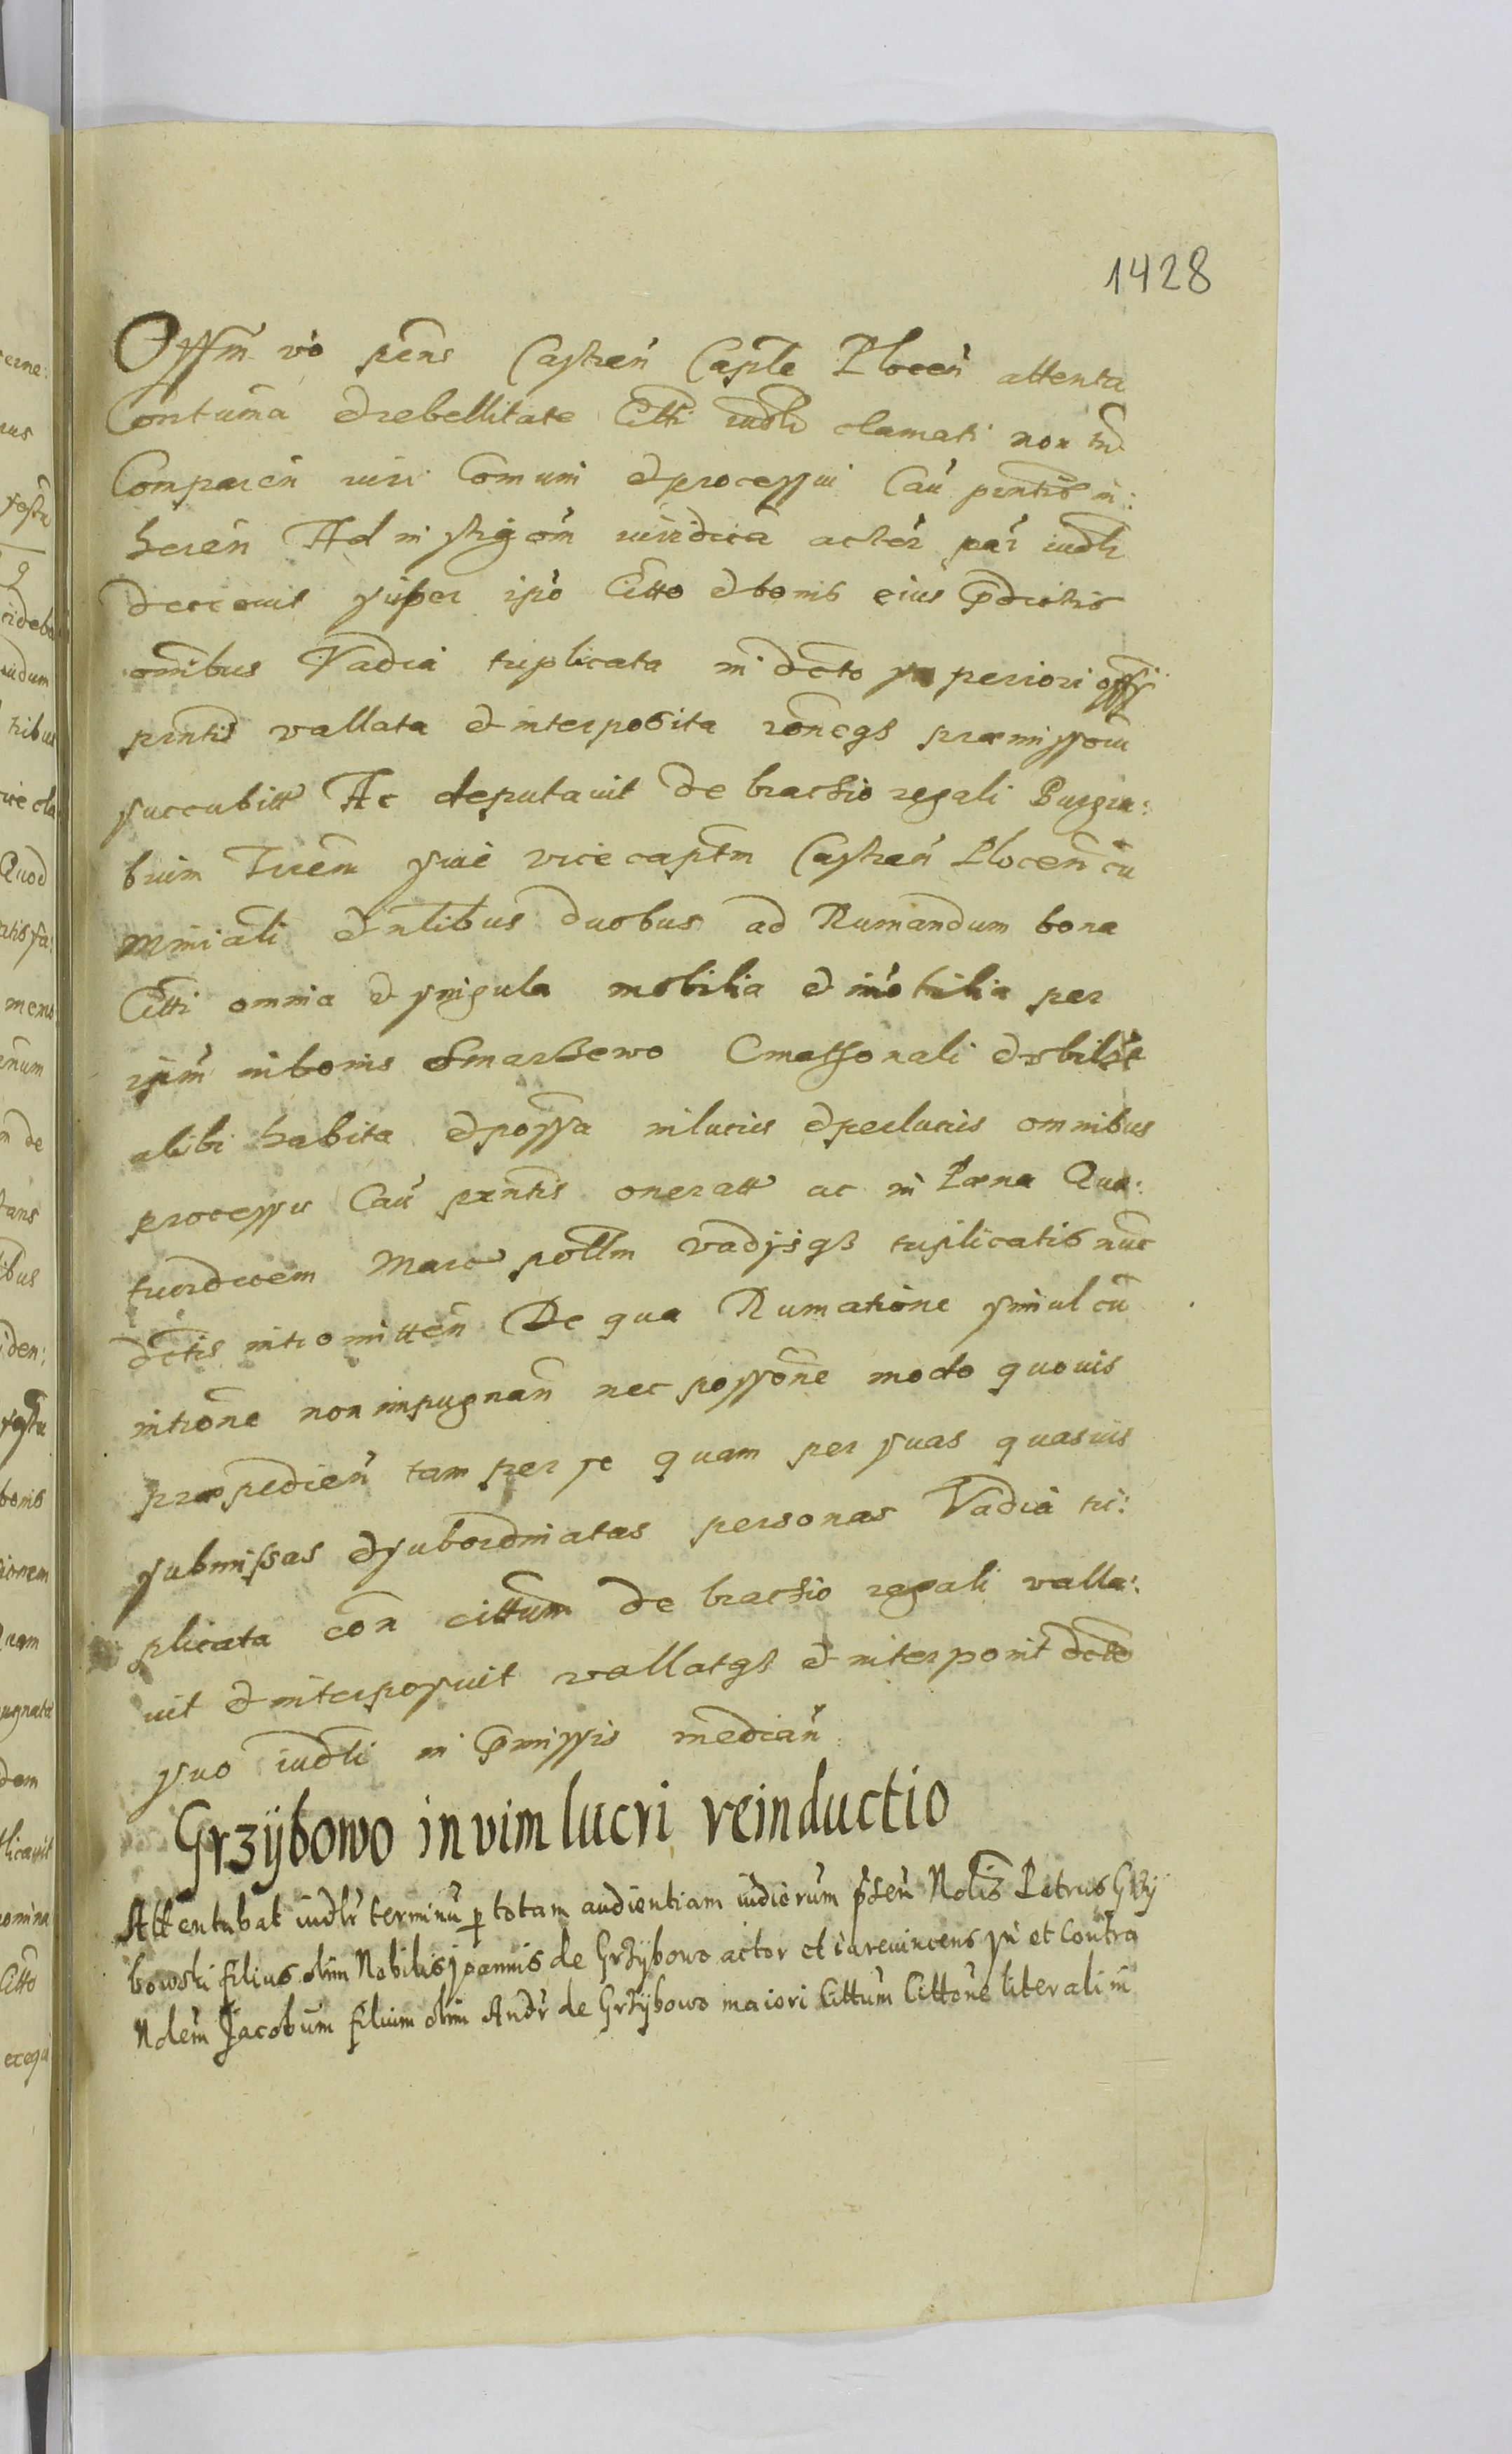 1428
Offm vo pens Castren Caple Plocen attenta
Contuma et rebellitate Citti iudlr clamati non tn
Comparen iuri Comuni et processui Cau prntis in:
heren Ad instigom iuridica actor par iudlr
decrevit super ipo Citto et bonis eius pdictis
omibus Vadia triplicata in dcto superiori offy
prntis vallata et interposita roneqs praemissoru
succubitt Ac deputavit de brachio regali Burgra:
bium Iurem sive vice captm Castren Plocen cu
Mniali et nlibus duobus ad Rumandum bona
Citti omnia et singula mobilia et imobilia per
ipm in bonis Smarzewo Cmethonali et ubilibt
alibi habita et possa in lucris et perlucris omnibus
processu Cau prntis oneratt ac in Poena Qua:
tuordecem Marc pollm vadysqs triplicatis nunc
dctis intromitten De qua Rumatione simul cu
introne non impugnan nec possone modo quovis
praepedien tam per se quam per suas quasvis
submissas et subordinatas personas Vadia tri:
plicata con cittum de brachio regali valla:
vit et interposuit vallatqs et interponit dcto
suo iudli in pmissis median
Grzybowo in vim lucri reinductio
Attentabat iudlr terminu p totam audientiam iudiorum psen Nolis Petrus Grzy
bowski filius olim Nobilis Joannis de Grzybowo actor et iurevincens in et contra
Nolem Jacobum filium olim Andr de Grzybowo maiori Cittum Cittone literali in